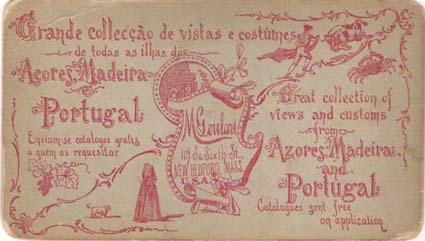 Grande collecção de vistas e costumes
de todas as ilhas dos
Açores, Madeira
e
Portugal
Enviam-se catalogos gratis
a quem os requesitar
M. Goulart
107 So. Sixth St.,
NEW BEDFORD, MASS.
U.S.A.
Great collection of
views and customs
from
Azores, Madeira
and
Portugal
Catalogues sent free
on application